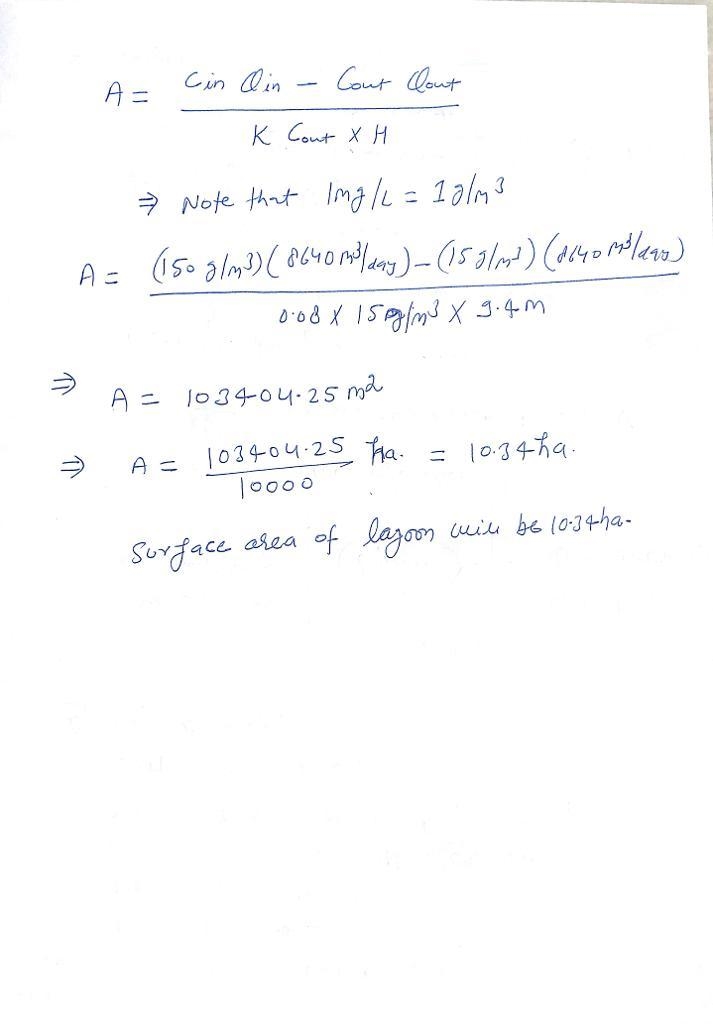 A = Cin Qin - Cout Qout
K Cout X H
⇒ Note that 1mg/L = 1g/m3
A = (150 g/m3)( 8640 m3/day) - (15 g/m3) (8640 m3/day)
0.08 X 15 g/m3 X 9.4 m
⇒ A = 103404.25 m2
⇒ A = 103404.25 ha. = 10.34ha.
10000
Surface area of lagoon will be 10.34ha.